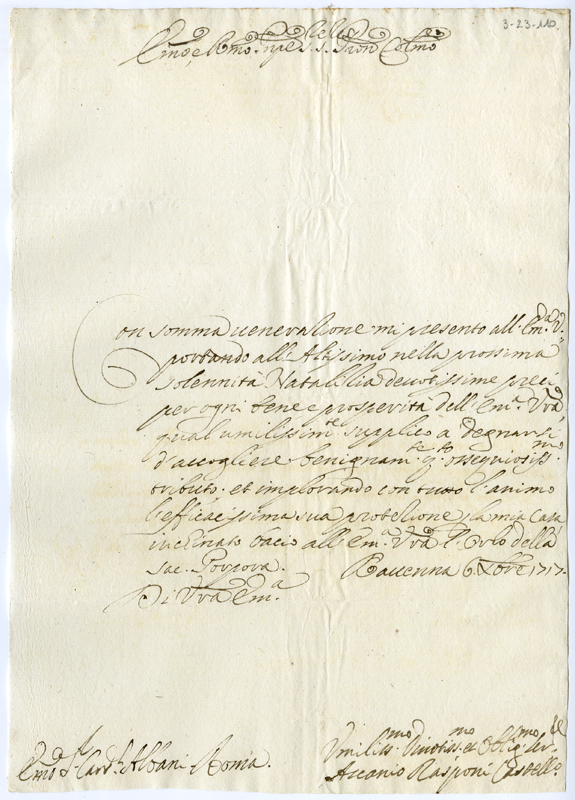 3-23-110.
Em̃o, e R̃mo. Sigre S. S. Pron Colmo
Con somma uenerazione mi presento all'Em.ᵃ V.ᵃ
portando all'Altissimo nella prossima
solennità Natalitia deuotissime preci
per ogni bene e prosperità dell'Em.ᵃ Vr̃a,
qual umilissim.ᵗᵉ supplico a degnarsi
d'accogliere benignam.ᵗᵉ q.ᵗᵒ ossequiosiss.ᵐᵒ
tributo. et implorando con tutto l'animo
l'efficacissima sua protezione p la mia Casa
inclinato bacio all'Em.ᵃ Vr̃a l'Orlo della
Sac. Porpora. Rauenna 6. Xbre 1717.
Di Vr̃a Em.ᵃ
Em̃o S.ʳ Card.ˡᵉ Albani. Roma.
Vmiliss.ᵐᵒ Diuotiss.ᵐᵒ et Oblig.ᵐᵒ
Ascanio Rasponi